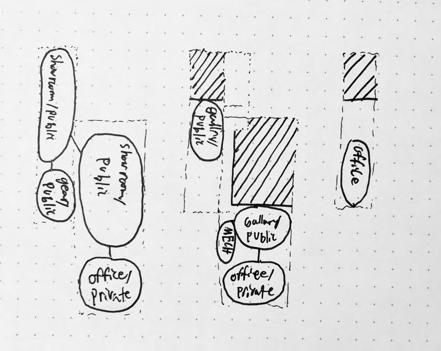 Showroom/public
gear/
public
Showroom/
public
office/
private
Gallery/
public
Gallery/
public
MECH
office/
private
office